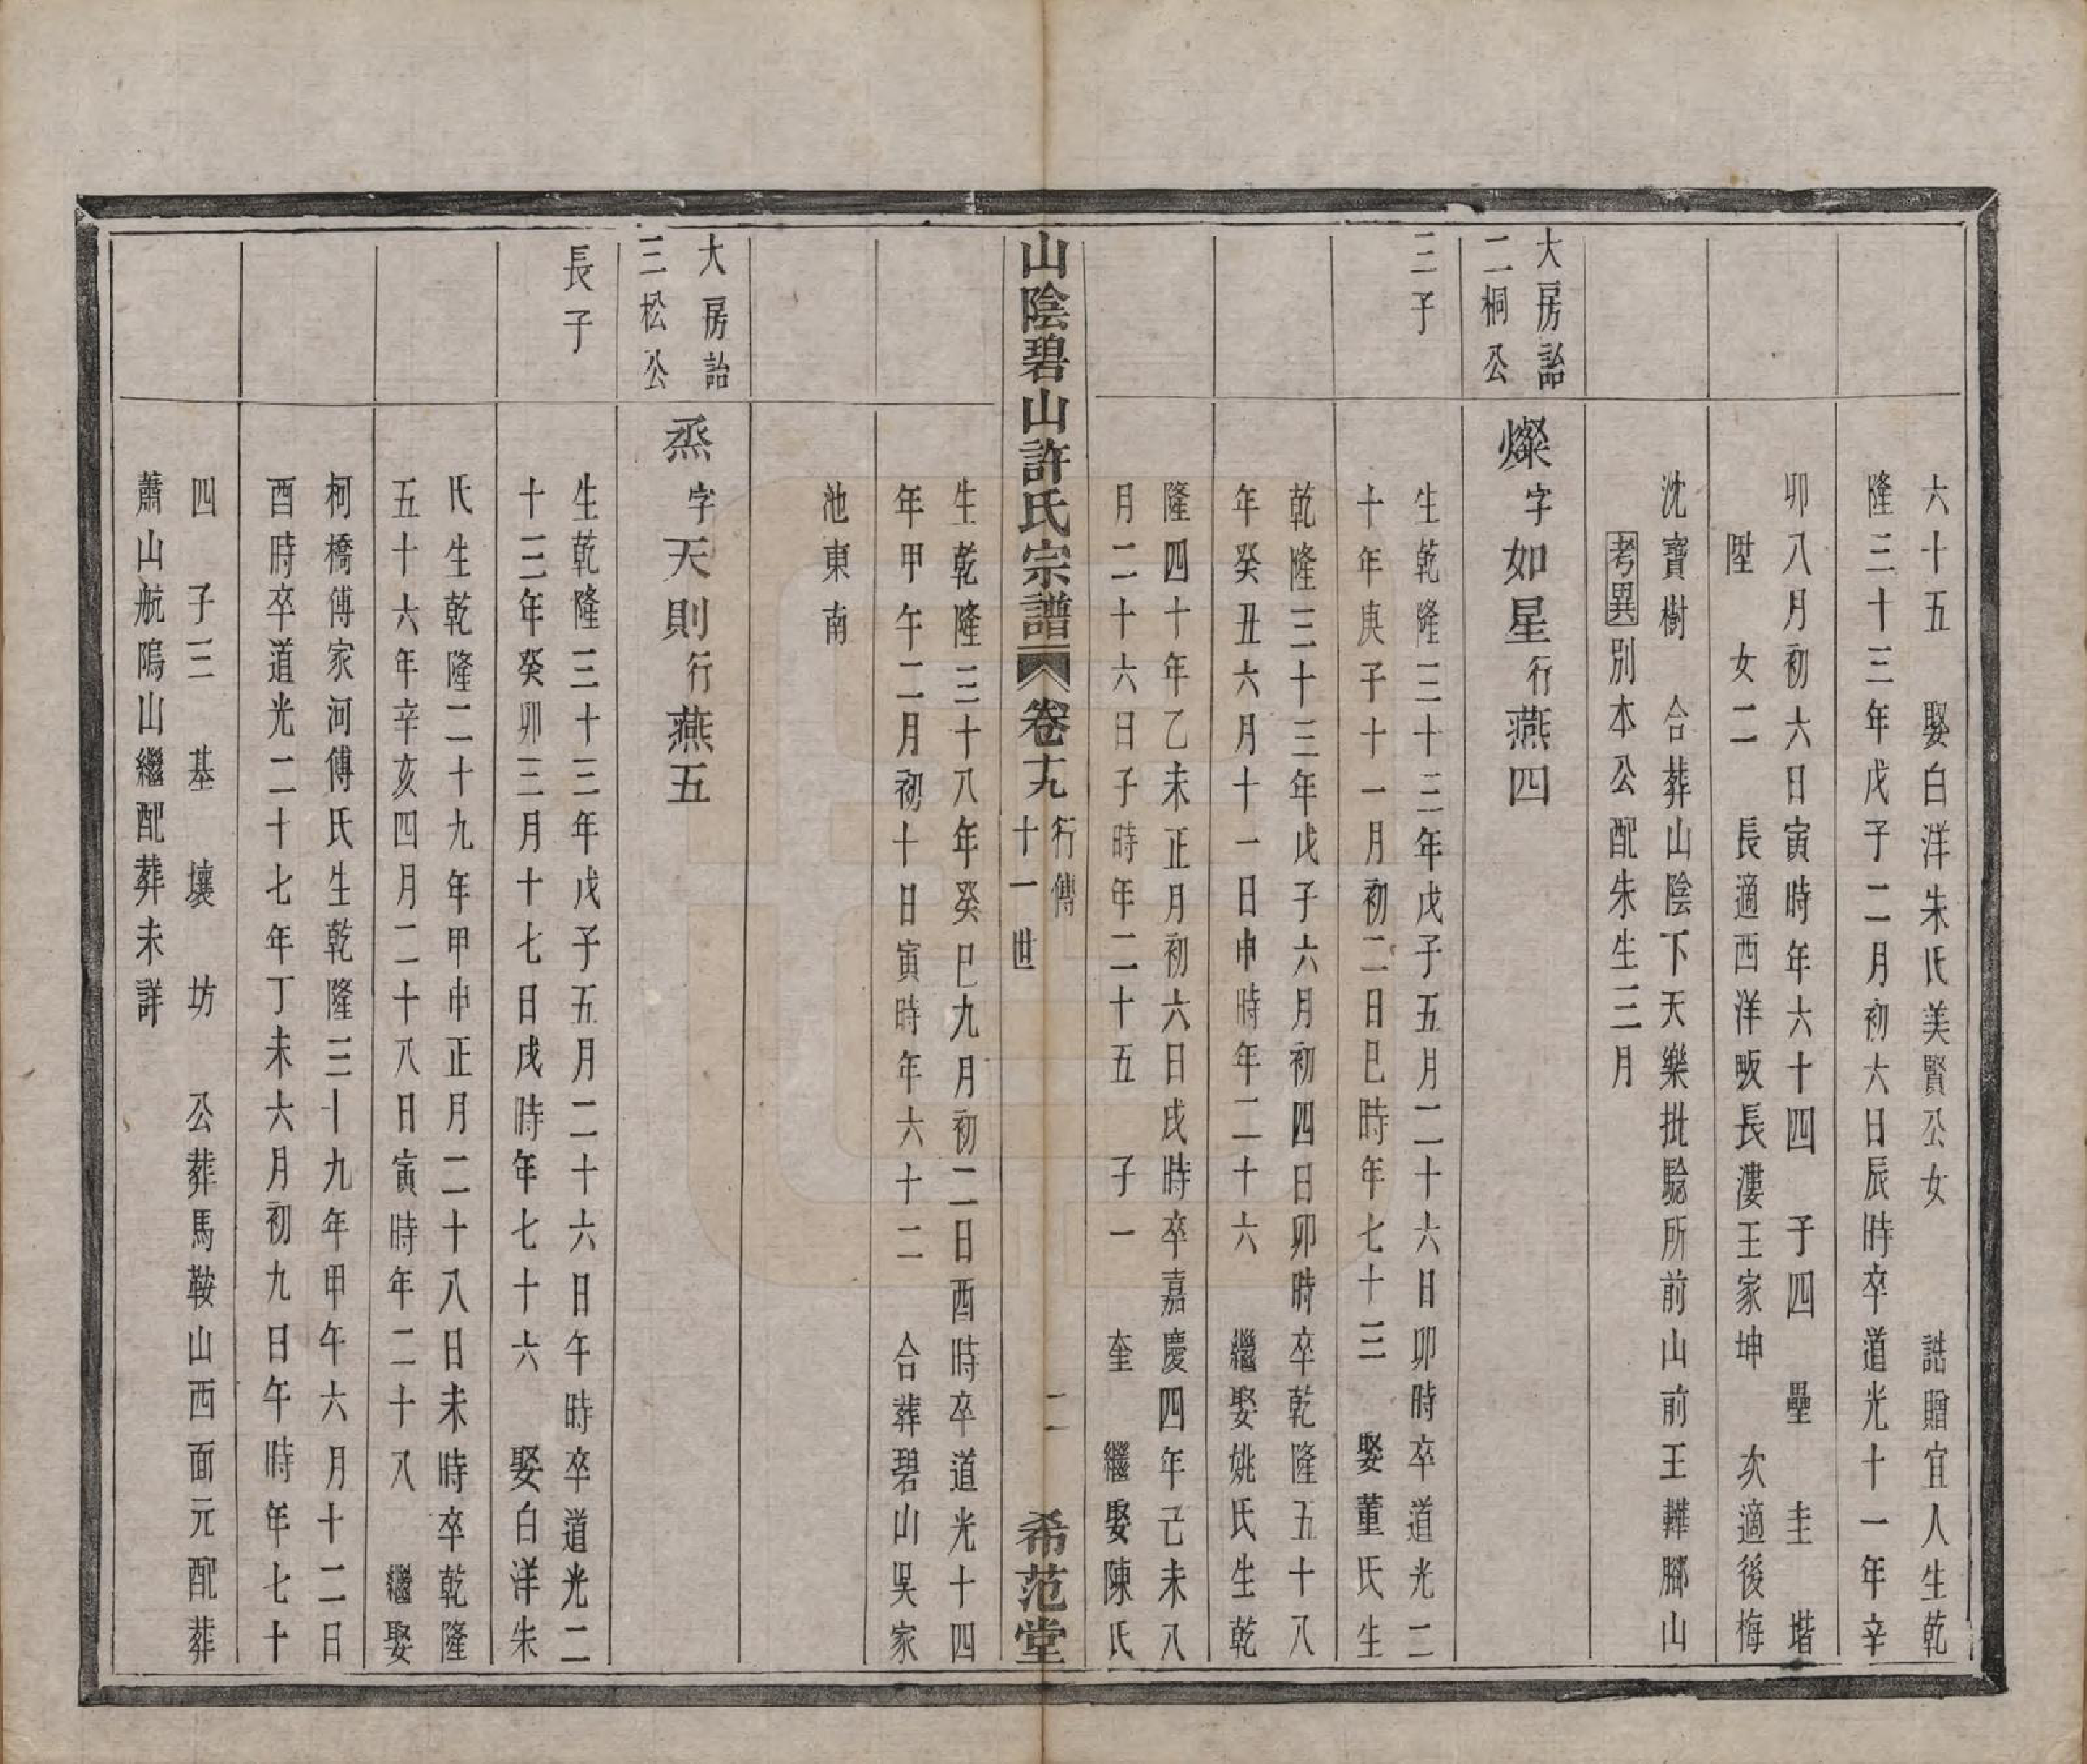 六十五 娶白洋朱氏美賢公女 誥贈宜人生乾
隆三十三年戊子二月初六日辰時卒道光十一年辛
卯八月初六日寅時年六十四 子四 壘 圭 堦
陞 女二 長適西洋畈長漊王家坤 次適後梅
沈寶樹 合葬山陰下天樂批驗所前山前王轆腳山
考異別本公配朱生三月
大房詒
二桐公
燦字如星行燕四
三子
生乾隆三十三年戊子五月二十六日卯時卒道光二
十年庚子十一月初二日巳時年七十三 娶董氏生
乾隆三十三年戊子六月初四日卯時卒乾隆五十八
年癸丑六月十一日申時年二十六 繼娶姚氏生乾
隆四十年乙未正月初六日戌時卒嘉慶四年己未八
月二十六日子時年二十五 子一 奎 繼娶陳氏
山陰碧山許氏宗譜 卷十九 行傳 十一世 二 希范堂
生乾隆三十八年癸巳九月初二日酉時卒道光十四
年甲午二月初十日寅時年六十二 合葬碧山吳家
池東南
大房詒
三松公
烝字天則行燕五
長子
生乾隆三十三年戊子五月二十六日午時卒道光二
十三年癸卯三月十七日戌時年七十六 娶白洋朱
氏生乾隆二十九年甲申正月二十八日未時卒乾隆
五十六年辛亥四月二十八日寅時年二十八 繼娶
柯橋傅家河傅氏生乾隆三十九年甲午六月十二日
酉時卒道光二十七年丁未六月初九日午時年七十
四 子三 基 壤 坊 公葬馬鞍山西面元配葬
蕭山航塢山繼配葬未詳